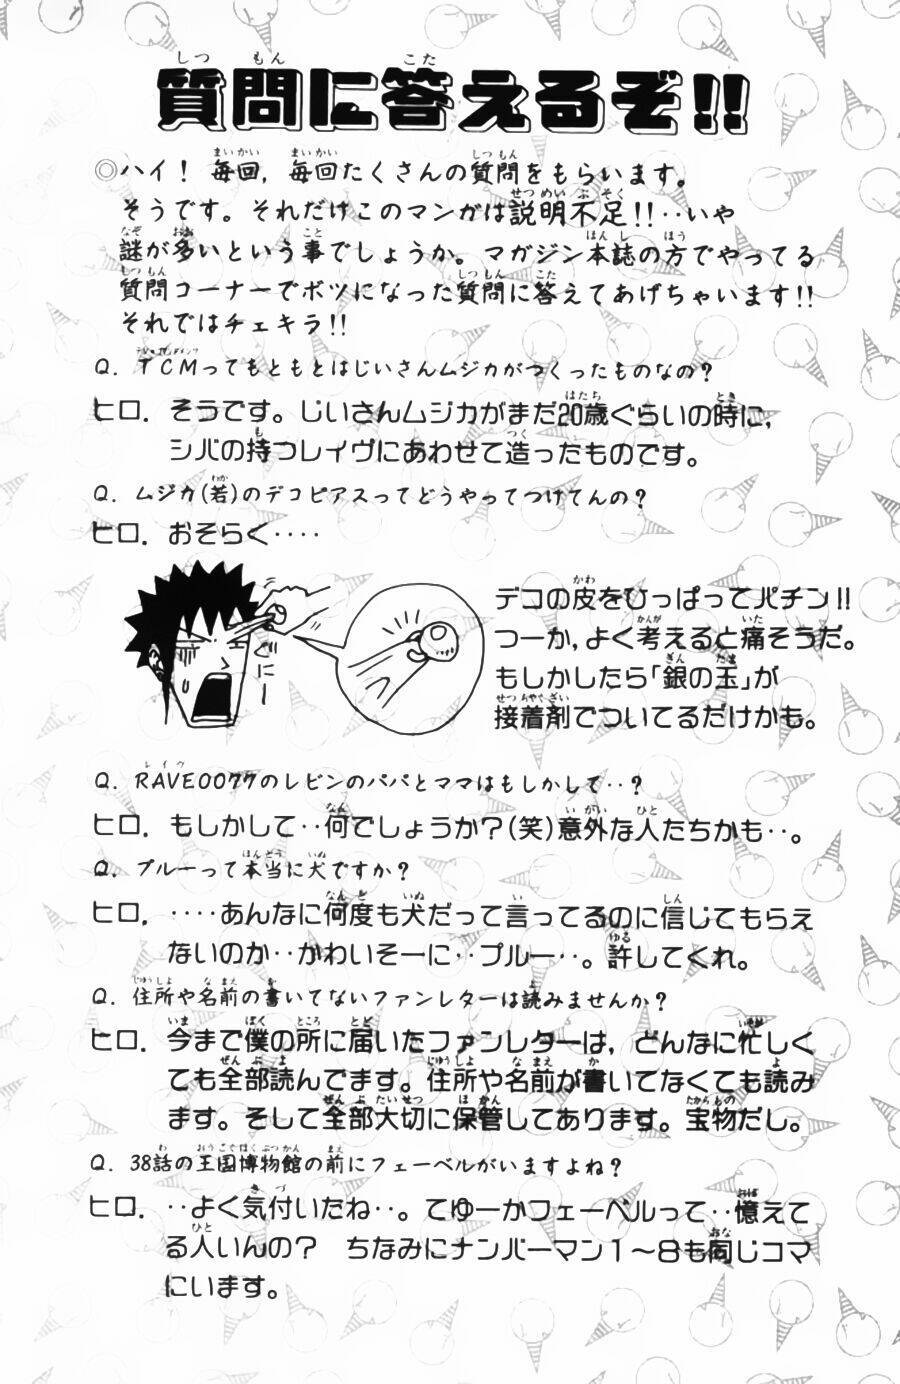 質問に答えるぞ!!
◎ハイ! 毎回,毎回たくさんの質問をもらいます。
そうです。それだけこのマンガは説明不足!!‥いや
謎が多いという事でしょうか。マガジン本誌の方でやってる
質問コーナーでボツになった質問に答えてあげちゃいます!!
それではチェキラ!!
Q. TCMってもともとはじいさんムジカがつくったものなの?
ヒロ. そうです。じいさんムジカがまだ20歳ぐらいの時に,
シバの持つレイヴにあわせて造ったものです。
Q. ムジカ(若)のデコピアスってどうやってつけてんの?
ヒロ. おそらく‥‥
ぐにー
デコの皮をひっぱってバチン!!
つーか,よく考えると痛そうだ。
もしかしたら「銀の玉」が
接着剤でついてるだけかも。
Q. RAVE0077のレビンのパパとママはもしかして‥?
ヒロ. もしかして‥何でしょうか?(笑)意外な人たちかも‥。
Q. プルーって本当に犬ですか?
ヒロ. ‥‥あんなに何度も犬だって言ってるのに信じてもらえ
ないのか‥かわいそーに‥プルー‥。許してくれ。
Q. 住所や名前の書いてないファンレターは読みませんか?
ヒロ. 今まで僕の所に届いたファンレターは,どんなに忙しく
ても全部読んでます。住所や名前が書いてなくても読み
ます。そして全部大切に保管してあります。宝物だし。
Q. 38話の王国博物館の前にフェーベルがいますよね?
ヒロ. ‥よく気付いたね‥。てゆーかフェーベルって‥憶えて
る人いんの? ちなみにナンバーマン1〜8も同じコマ
にいます。